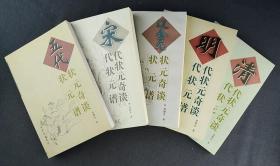 五代
状元奇谈
状元谱
宋
代状元奇谈
代状元谱
辽金元
状元奇谈
状元谱
明
代状元奇谈
代状元谱
清
代状元奇谈
代状元谱